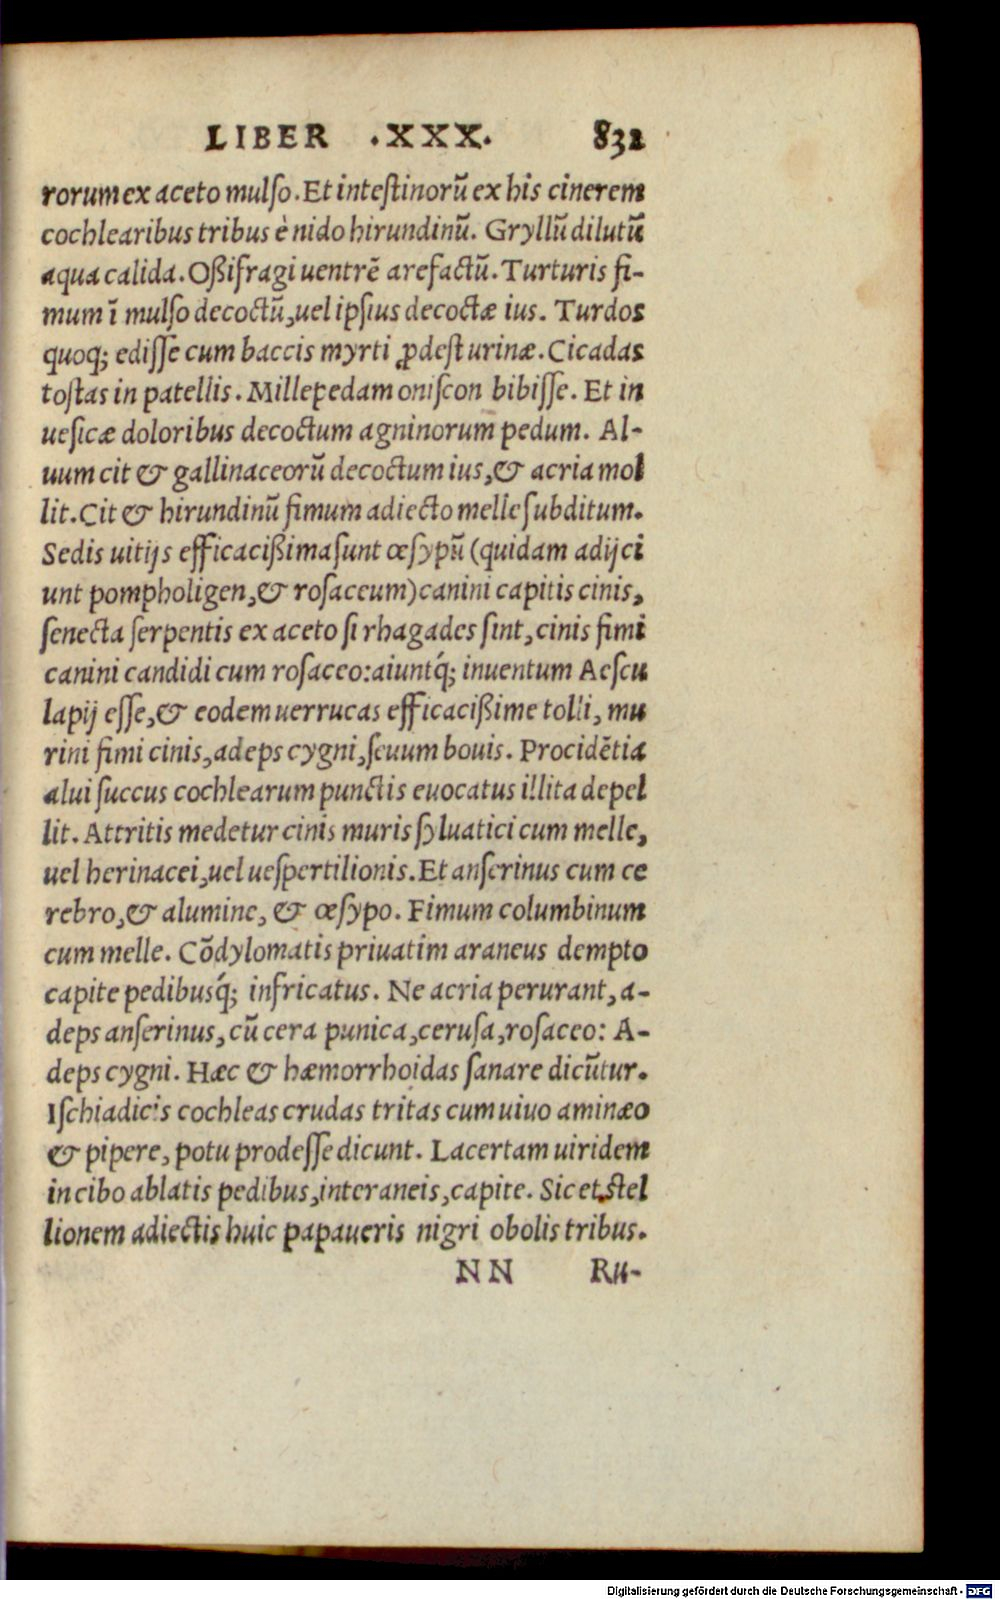 LIBER .XXX. 832
rorum ex aceto mulſo. Et inteſtinorũ ex his cinerem
cochlearibus tribus è nido hirundinũ. Gryllũ dilutũ
aqua calida. Oßifragi uentrẽ arefactũ. Turturis fi-
mum ĩ mulſo decoctũ, uel ipſius decoctæ ius. Turdos
quoq; ediſſe cum baccis myrti ꝓdeſt urinæ. Cicadas
toſtas in patellis. Millepedam oniſcon bibiſſe. Et in
ueſicæ doloribus decoctum agninorum pedum. Al-
uum cit & gallinaceorũ decoctum ius, & acria mol
lit. Cit & hirundinũ fimum adiecto melle ſubditum.
Sedis uitijs efficacißima ſunt œſypũ (quidam adijci
unt pompholigen, & roſaceum) canini capitis cinis,
ſenecta ſerpentis ex aceto ſi rhagades ſint, cinis fimi
canini candidi cum roſaceo: aiuntq́; inuentum Aeſcu
lapij eſſe, & eodem uerrucas efficacißime tolli, mu
rini fimi cinis, adeps cygni, ſeuum bouis. Procidẽtia
alui ſuccus cochlearum punctis euocatus illita depel
lit. Attritis medetur cinis muris ſyluatici cum melle,
uel herinacei, uel ueſpertilionis. Et anſerinus cum ce
rebro, & alumine, & œſypo. Fimum columbinum
cum melle. Cõdylomatis priuatim araneus dempto
capite pedibusq́; infricatus. Ne acria perurant, a-
deps anſerinus, cũ cera punica, ceruſa, roſaceo: A-
deps cygni. Hæc & hæmorrhoidas ſanare dicũtur.
Iſchiadicis cochleas crudas tritas cum uiuo aminæo
& pipere, potu prodeſſe dicunt. Lacertam uiridem
in cibo ablatis pedibus, interaneis, capite. Sic et ſtel
lionem adiectis huic papaueris nigri obolis tribus.
NN Ru-
Digitalisierung gefördert durch die Deutsche Forschungsgemeinschaft - DFG